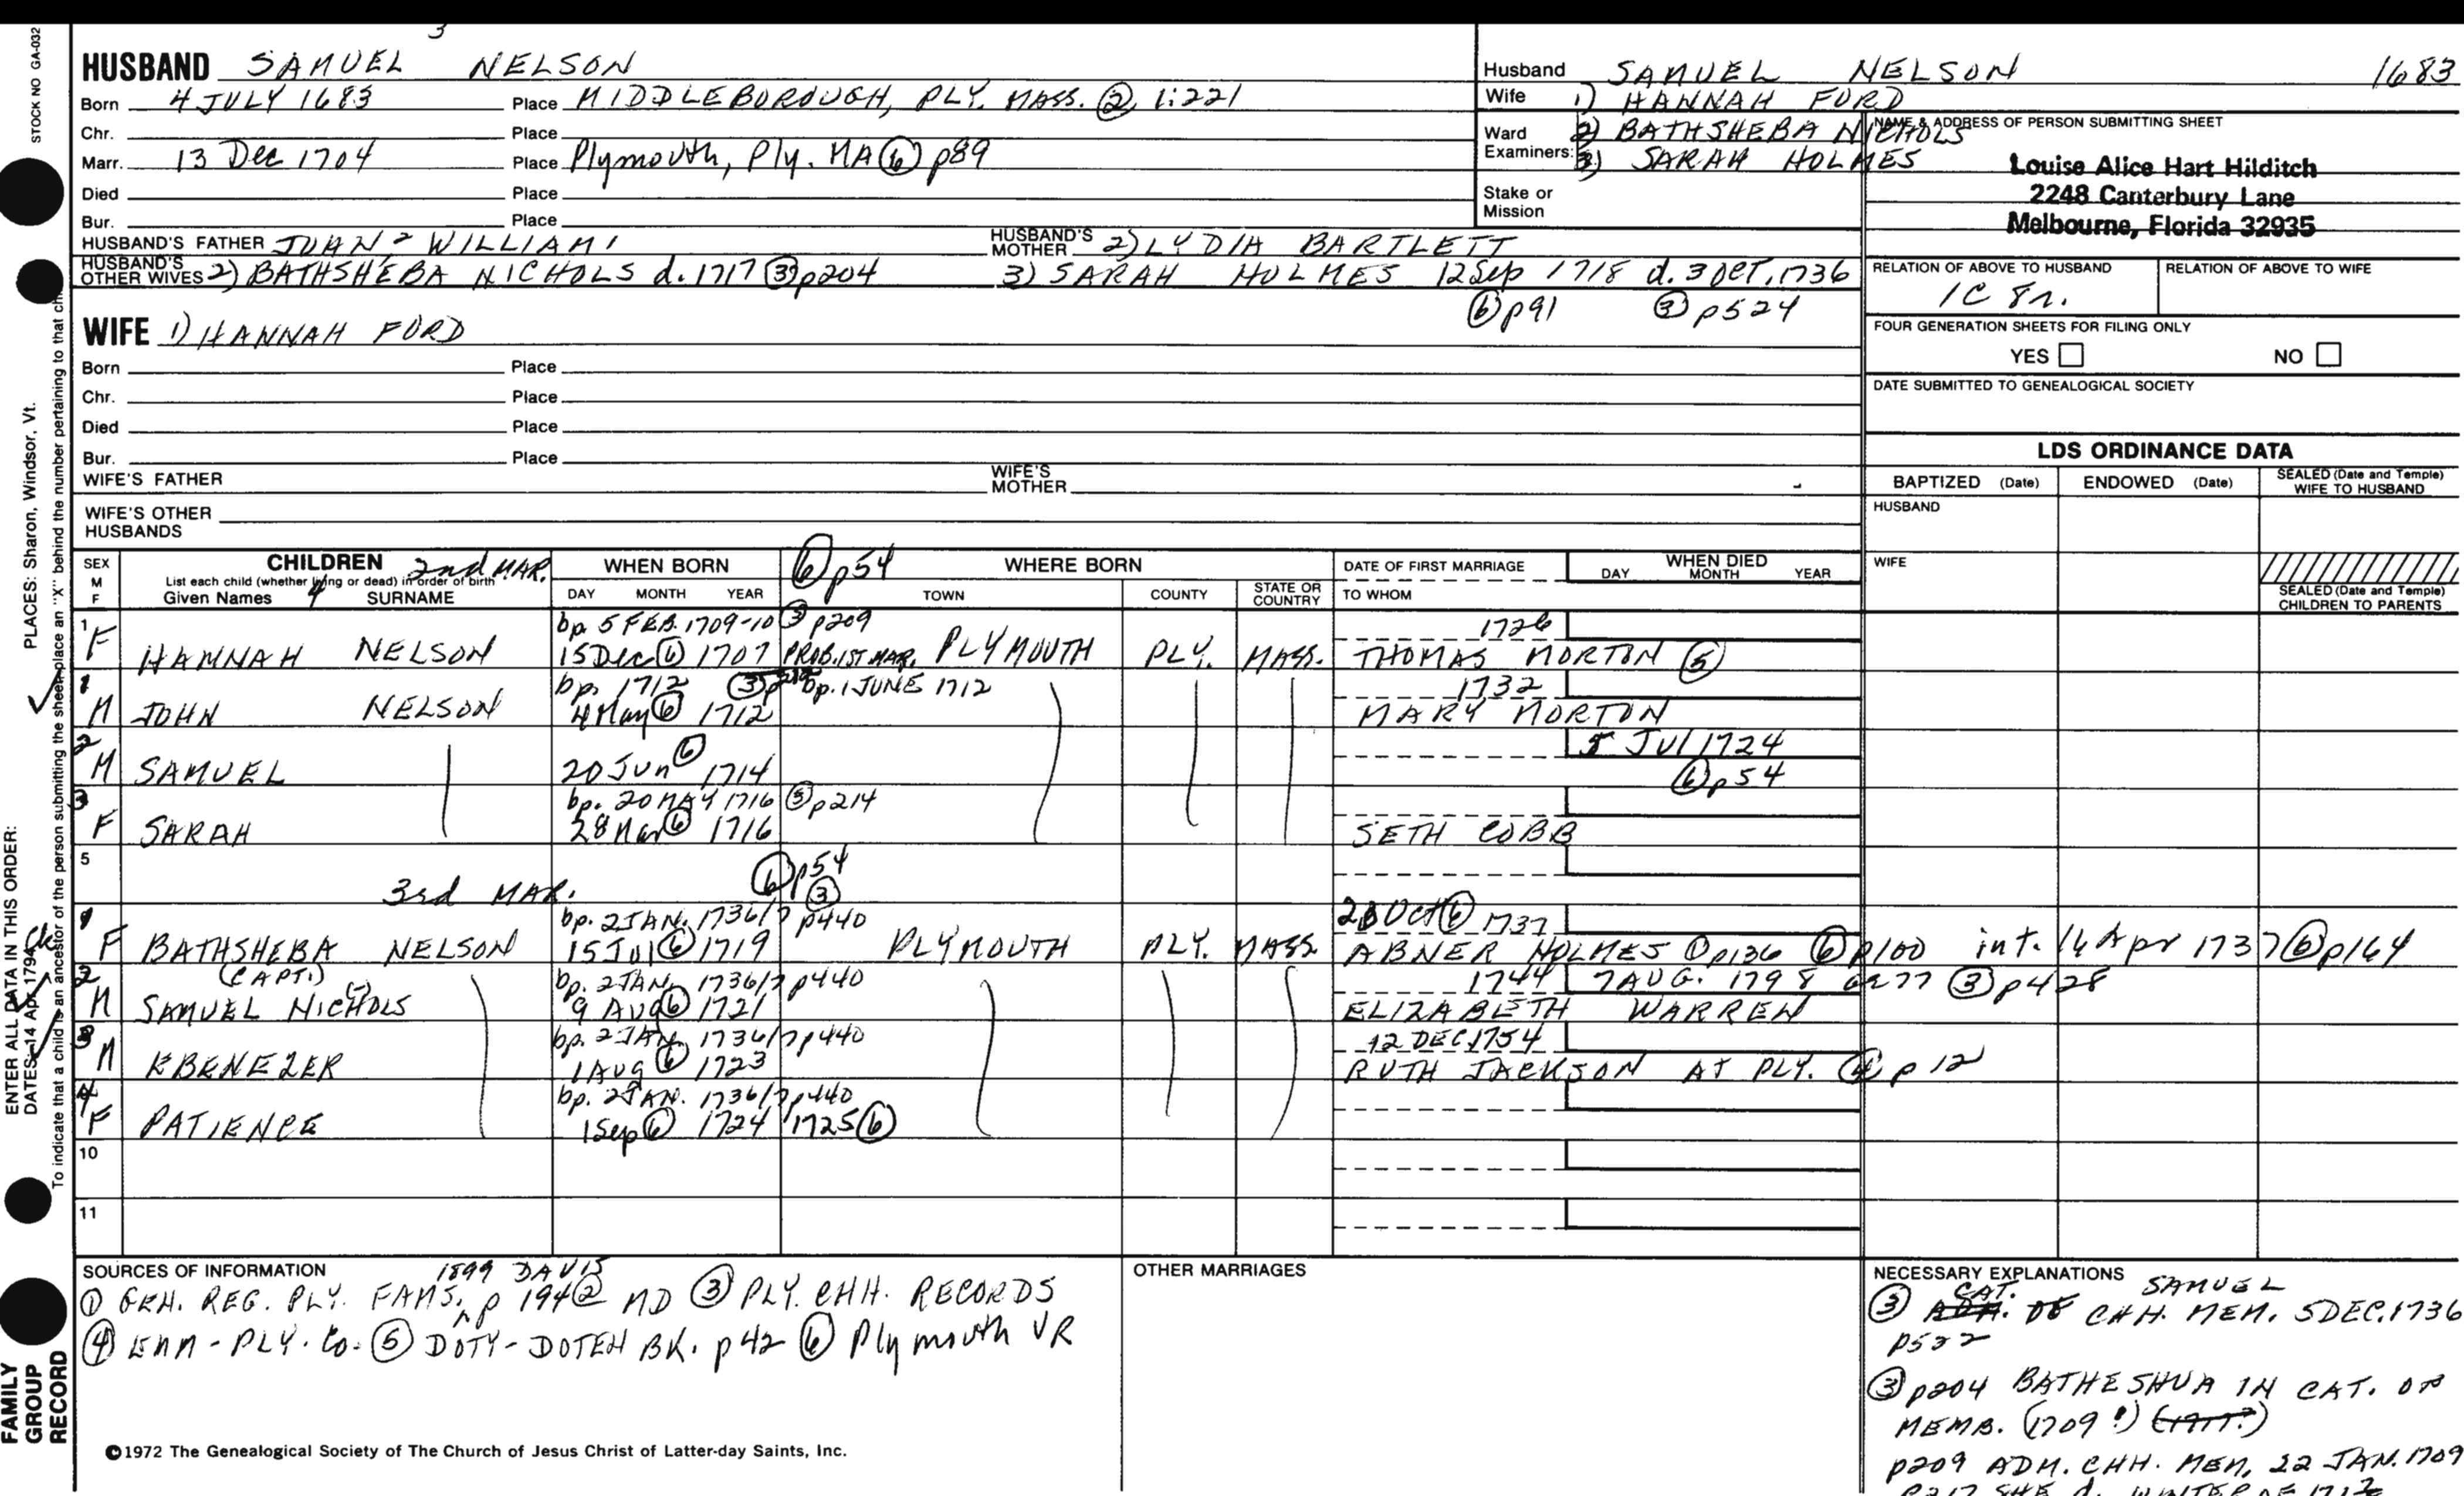 3
HUSBAND SAMUEL NELSON
Born 4 JULY 1683 Place MIDDLEBOROUGH, PLY. MASS. ② 1:221
Chr. Place
Marr. 13 Dec 1704 Place Plymouth, Ply. MA ⑥ p89
Died Place
Bur. Place
HUSBAND'S FATHER JOHN² WILLIAM¹ HUSBAND'S MOTHER 2) LYDIA BARTLETT
HUSBAND'S OTHER WIVES 2) BATHSHEBA NICHOLS d. 1717 ③ p204 3) SARAH HOLMES 12 Sep 1718 d. 3 OCT, 1736
⑥ p91 ③ p524
WIFE 1) HANNAH FORD
Born Place
Chr. Place
Died Place
Bur. Place
WIFE'S FATHER WIFE'S MOTHER
WIFE'S OTHER HUSBANDS
Husband SAMUEL NELSON 1683
Wife 1) HANNAH FORD
Ward 2) BATHSHEBA NICHOLS
Examiners: 3) SARAH HOLMES
Stake or Mission
NAME & ADDRESS OF PERSON SUBMITTING SHEET
Louise Alice Hart Hilditch
2248 Canterbury Lane
Melbourne, Florida 32935
RELATION OF ABOVE TO HUSBAND RELATION OF ABOVE TO WIFE
1C 8r.
FOUR GENERATION SHEETS FOR FILING ONLY
YES NO
DATE SUBMITTED TO GENEALOGICAL SOCIETY
LDS ORDINANCE DATA
BAPTIZED (Date) ENDOWED (Date) SEALED (Date and Temple) WIFE TO HUSBAND
HUSBAND
WIFE
SEALED (Date and Temple) CHILDREN TO PARENTS
SEX M F CHILDREN 2nd MAR. WHEN BORN ⑥ p54 WHERE BORN DATE OF FIRST MARRIAGE WHEN DIED
List each child (whether living or dead) in order of birth
Given Names SURNAME DAY MONTH YEAR TOWN COUNTY STATE OR COUNTRY TO WHOM DAY MONTH YEAR
1 bp. 5 FEB. 1709-10 ③ p209 1726
F HANNAH NELSON 15 Dec ⑥ 1707 PROB. 1ST MAR. PLYMOUTH PLY. MASS. THOMAS MORTON ⑤
1 bp. 1712 ③ bp. 1 JUNE 1712 1732
M JOHN NELSON 4 May ⑥ 1712 MARY MORTON
2 5 Jul 1724
M SAMUEL 20 Jun ⑥ 1714 ⑥ p54
3 bp. 20 MAY 1716 ③ p214
F SARAH 28 Mar ⑥ 1716 SETH COBB
5
3rd MAR. ⑥ p54
③
1 bp. 2 JAN. 1736/7 p440 28 Oct ⑥ 1737
F BATHSHEBA NELSON 15 Jul ⑥ 1719 PLYMOUTH PLY. MASS ABNER HOLMES ① p136 ⑥ p100 int. 16 Apr 1737 ⑥ p164
2 (CAPT.) bp. 2 JAN. 1736/7 p440 1744 7 AUG. 1798 ae 77 ③ p428
M SAMUEL NICHOLS 9 Aug ⑥ 1721 ELIZABETH WARREN
3 bp. 2 JAN. 1736/7 p440 12 DEC 1754
M EBENEZER 1 Aug ⑥ 1723 RUTH JACKSON AT PLY. ④ p 12
4 bp. 2 JAN. 1736/7 p440
F PATIENCE 1 Sep ⑥ 1724 1725 ⑥
10
11
SOURCES OF INFORMATION 1899 DAVIS
① GEN. REG. PLY. FAMS. p 194 ② MD ③ PLY. CHH. RECORDS
④ EAM - PLY. Co. ⑤ DOTY-DOTEN BK. p42 ⑥ Plymouth VR
OTHER MARRIAGES
NECESSARY EXPLANATIONS SAMUEL
③ CAT. OF CHH. MEM. 5 DEC. 1736
③ p204 BATHESHUA IN CAT. OF
MEMB. (1709!)
p209 ADM. CHH. MEM. 22 JAN. 1709
p217 SHE d. WINTER OF
©1972 The Genealogical Society of The Church of Jesus Christ of Latter-day Saints, Inc.
STOCK NO GA-032
PLACES: Sharon, Windsor, Vt.
ENTER ALL DATA IN THIS ORDER:
DATES: 14 Apr 1794
To indicate that a child is an ancestor of the person submitting the sheet, place an "X" behind the number pertaining to that ch
FAMILY GROUP RECORD